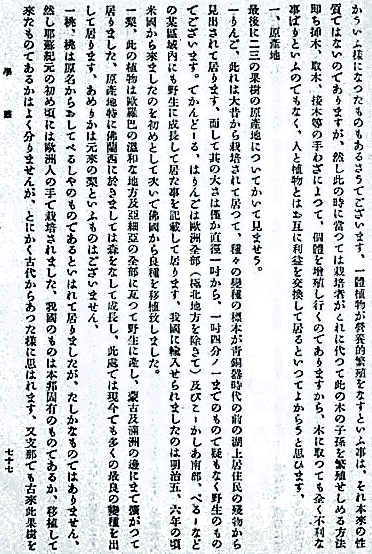 かういふ樣になつたものもあるさうでございます、一體植物が營養的繁殖をなすといふ事は、それ本來の性
質ではないのでありますが、然し此の時に當つては栽培者がこれに代つて此の木の子孫を繁殖せしめる方法
即ち揷木、取木、接木等の手わざによつて、個體を增殖し行くのでありますから、木に取つても全く不利な
事ばりといふのでもなく、人と植物とはお互に利益を交換して居るといつてよからうと思ひます、
一、原產地
最後に二三の果樹の原產地についてかいて見ませう。
一りんど、此れは大昔から栽培されて居つて、種々の變種の標本が靑銅器時代の前の湖上居住民の殘物から
見出されて居ります、而して其の大さは僅か直徑一吋から、一吋四分ノ一までのもので疑もなく野生のもの
でございます。でかんどーる、はりんどは歐洲全部(極北地方を除きて)及びこーかしあ南部、べるーなど
の某區域內にも野生に成長して居た事を記載して居ります、我國に輸入せられましたのは明治五、六年の頃
米國から來ましたのを初めとして次いで佛國から良種を移植致しました。
一梨、此の植物は歐羅巴の溫和な地方及亞細亞の全部に亙つて野生に產し、蒙古及滿洲の邊にまで廣がつて
居りました、原產地特に佛蘭西に於きましては森をなして成長し、此處では現今でも多くの最良の變種を出
して居ります、あめりかは元來の梨といふものはございません、
一桃、桃は原名からおしてぺるしやのものであるといはれて居りましたが、たしかなものではありません、
然し耶蘇紀元の初め頃には歐洲人の手で栽培されました、我國のものは本邦固有のものであるか、移植して
來たものであるかはよく分りませんが、とにかく古代からあつた樣に思はれます、又支那でも古來此果樹を
學藝
七十七